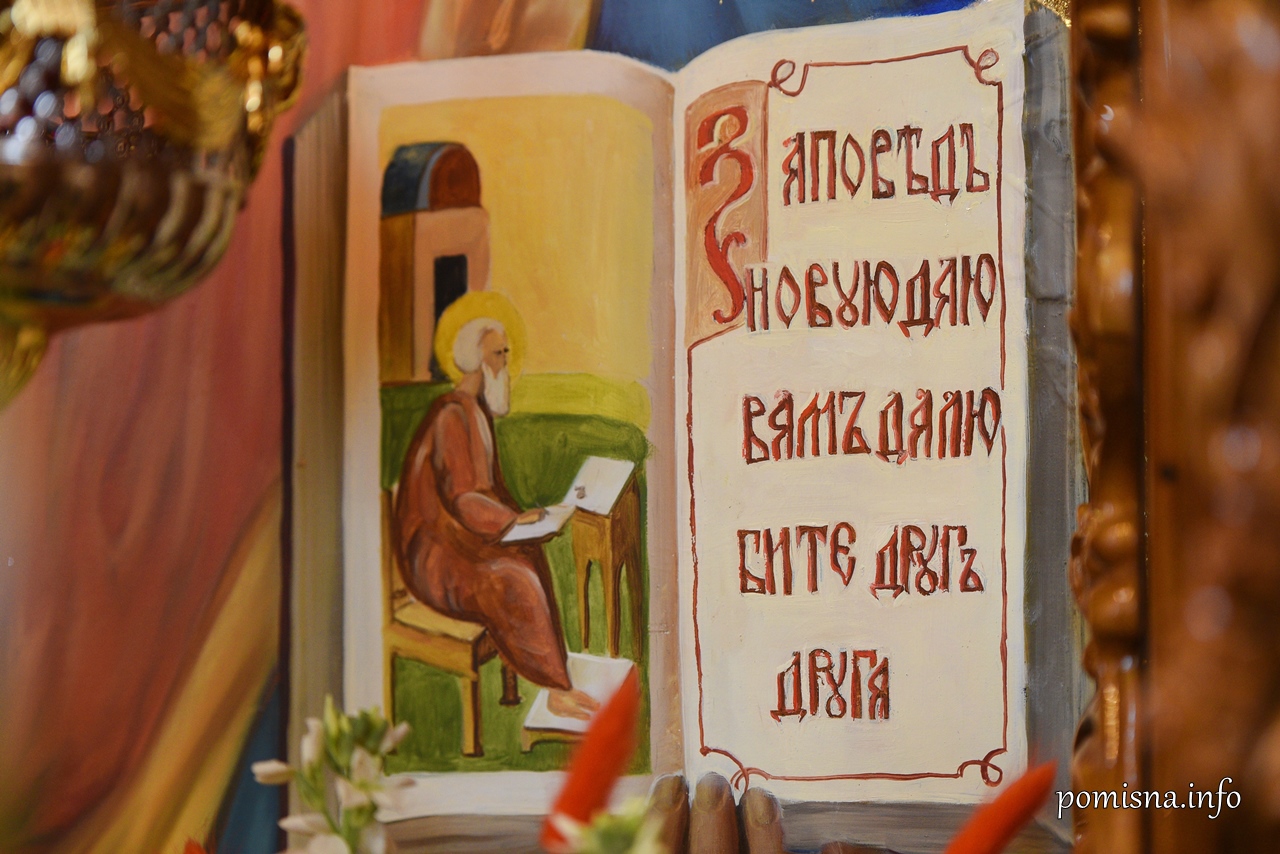 Заповѣдь
новꙋюдаю
вамъдалю
бите дрꙋгъ
дрꙋга
pomisna.info